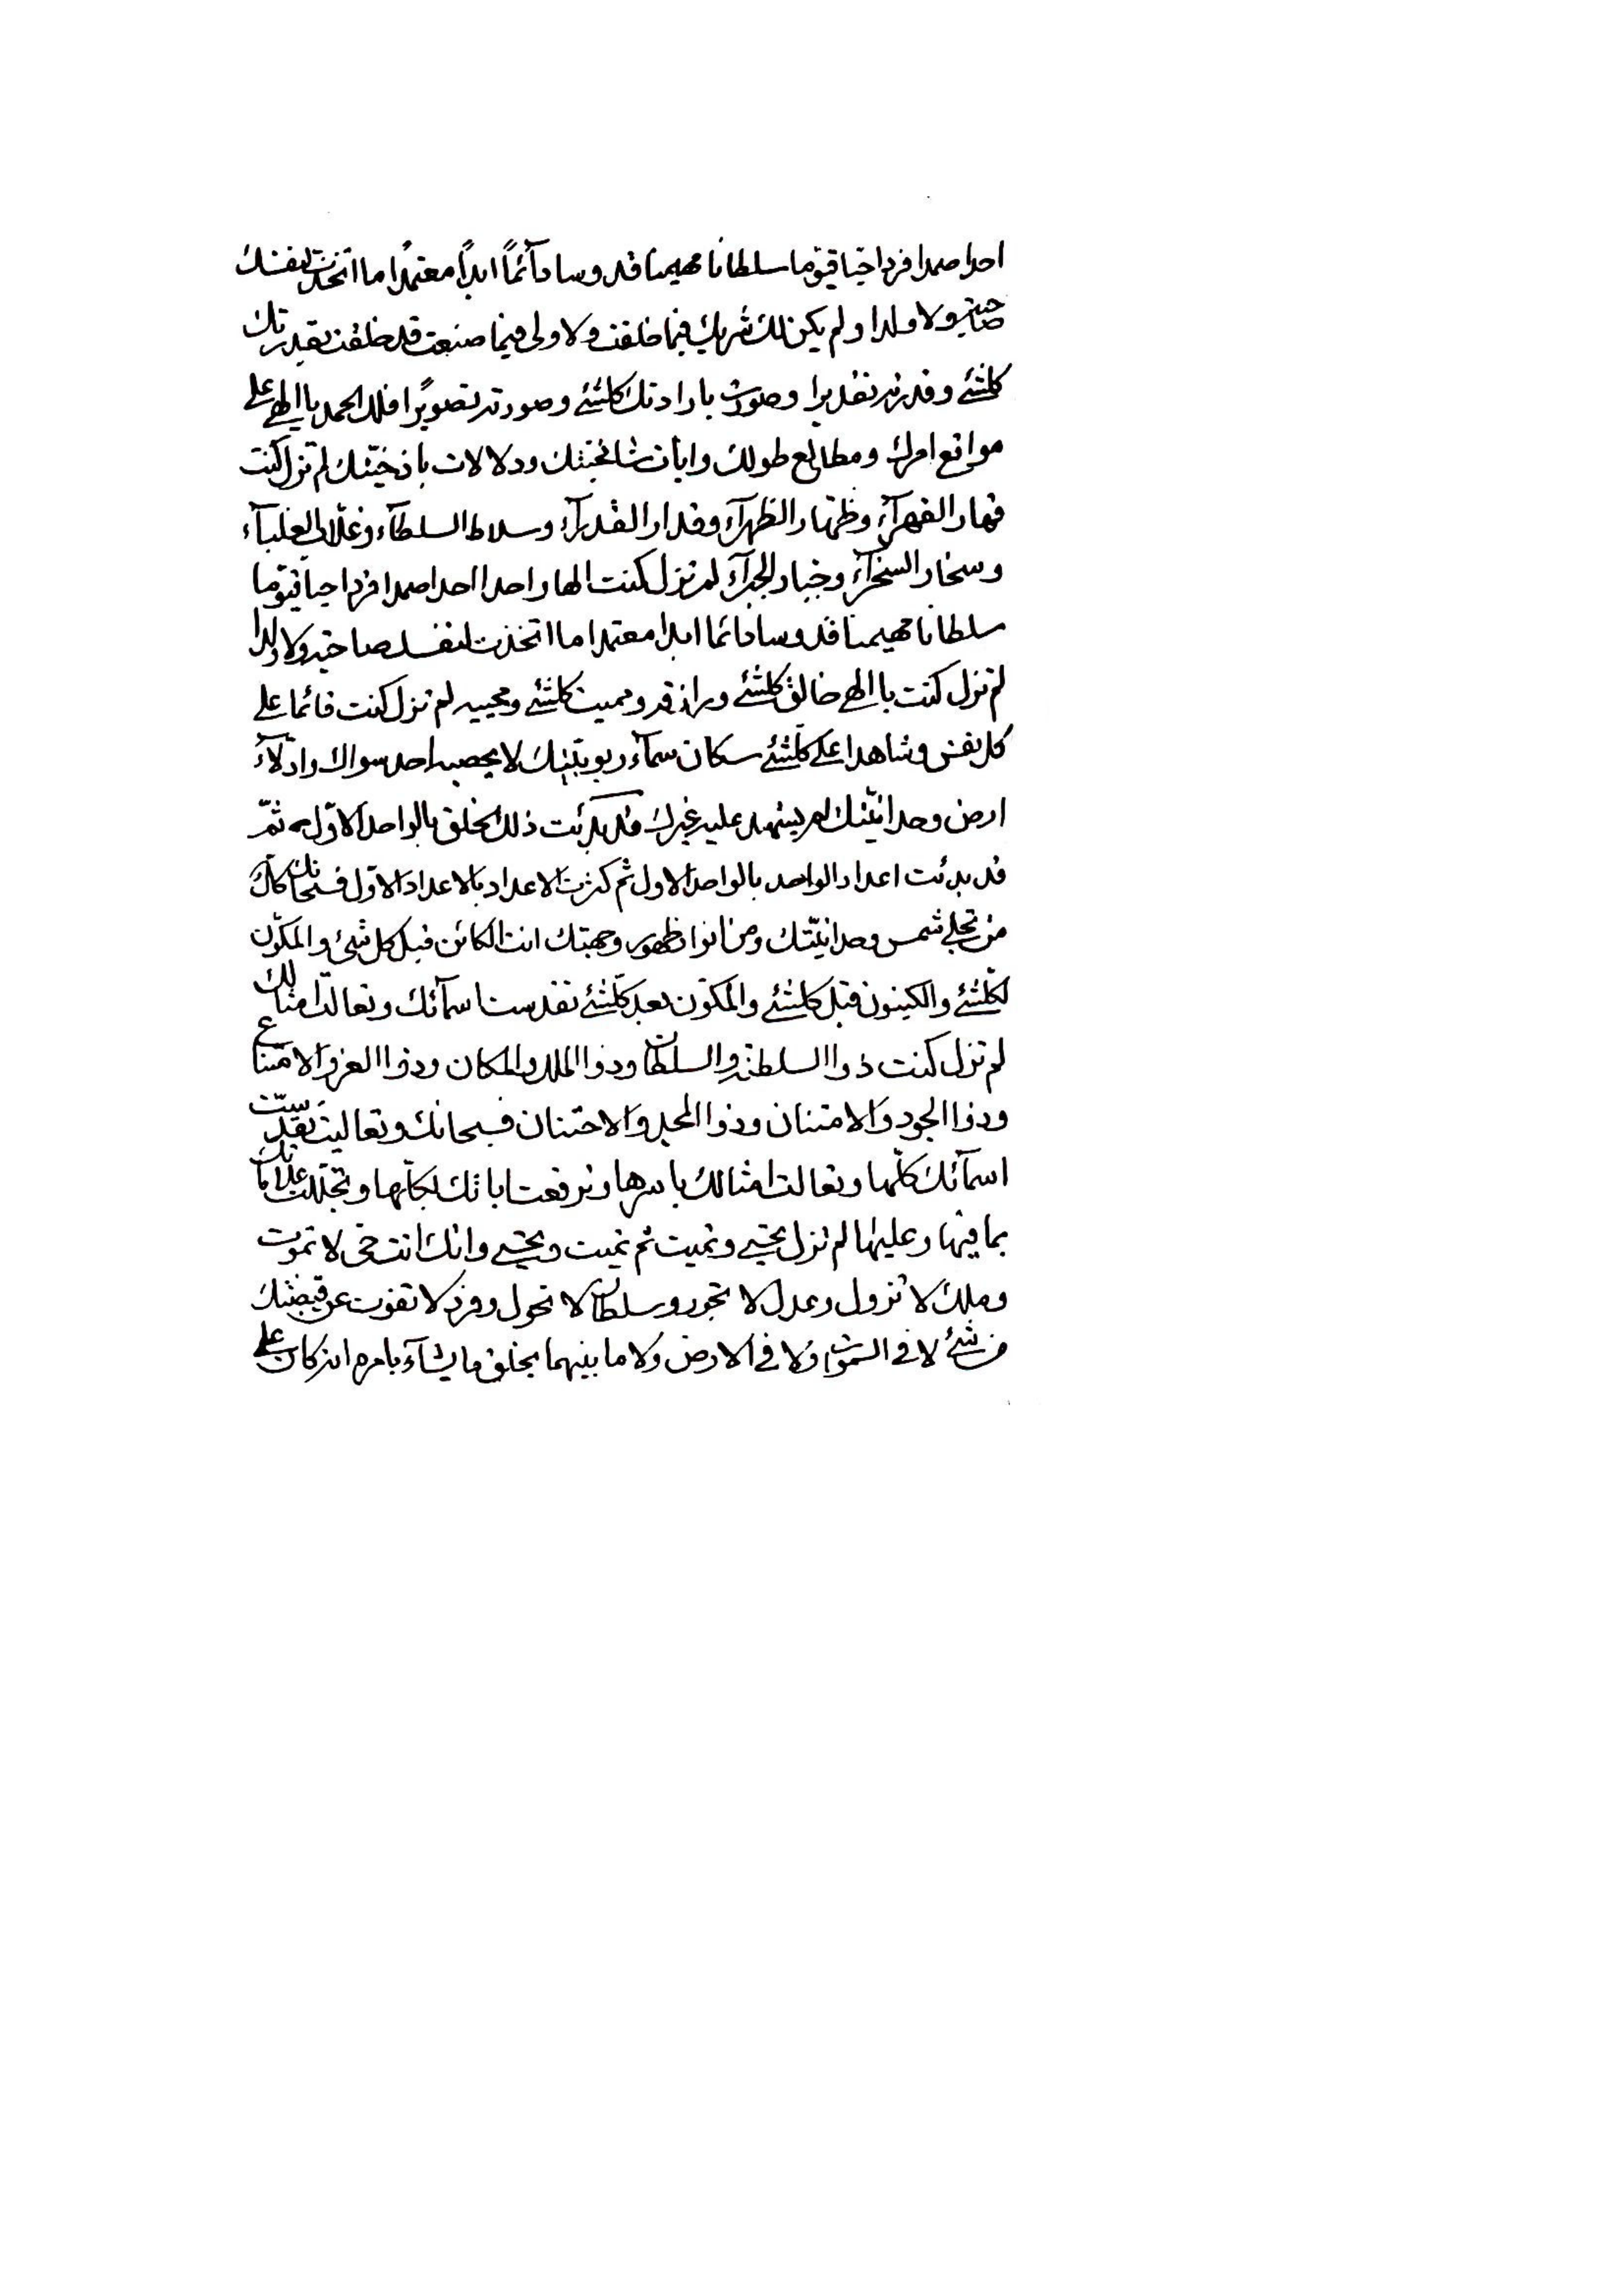 احدا صمدا فردا حیا قیوما سلطانا مهیمنا قدوسا دآئماً ابداً معتمدًا ما اتخذت لنفسك
صاحبة ولا ولدا ولم یکن لك شریك فیما خلقت ولا ولی فیما صنعت قد خلقت بقدرتك
کلشئ وقدرته تقدیرا وصورت بارادتك کلشئ وصورته تصویرًا فلك الحمد یا الهی علی
مواقع امرك ومطالع طولك وایات شامختیتك ودلالات باذختیك لم تزل کنت
قهار القهرآء وظهار الظهرآء وقدار القدرآء وسلاط السلطآء وغلاب الغلبآء
وسخار السخرآء وجبار الجبرآء لم تزل کنت الها واحدا احدا صمدا فردا حیا قیوما
سلطانا مهیمنا قدوسا دائما ابدا معتمدا ما اتخذت لنفسك صاحبة ولا ولدا
لم تزل کنت یا الهی خالق کلشئ ورازقه وممیت کلشئ ومحییه لم تزل کنت قائما علی
کل نفس وشاهدا علی کلشئ سکان سمآء ربوبیتك لا یحصیه احد سواك وادلآء
ارض وحدانیتك لم یشهد علیه غیرك قد بدئت ذلك الخلق بالواحد الاول ثم
قد بدئت اعداد الواحد بالواحد الاول ثم کثرت الاعداد بالاعداد الاول فسبحانك کل
من تجلی شمس وحدانیتك ومن انوار ظهور وجهتك انت الکائن قبل کل شئ والمکون
لکلشئ والکینون قبل کلشئ والمکون بعد کلشئ تقدست اسمآئك وتعالت امثالك
لم تزل کنت ذوا السلطنة والسلطان وذوا الملك والمکان وذوا العز والامتناع
وذوا الجود والامتنان وذوا المجد والاحتنان فسبحانك وتعالیت تقدست
اسمآئك کلها وتعالت امثالك باسرها وترفعت ایاتك بکلها وتجللت علاماتك
بما فیها وعلیها لم تزل تحیی وتمیت ثم تمیت وتحیی وانك انت حی لا تموت
وملك لا تزول وعدل لا تجور وسلطان لا تحول وفرد لا تفوت عن قبضتك
من شئ لا فی السموات ولا فی الارض ولا ما بینهما یخلق ما یشآء بامره انه کان علی